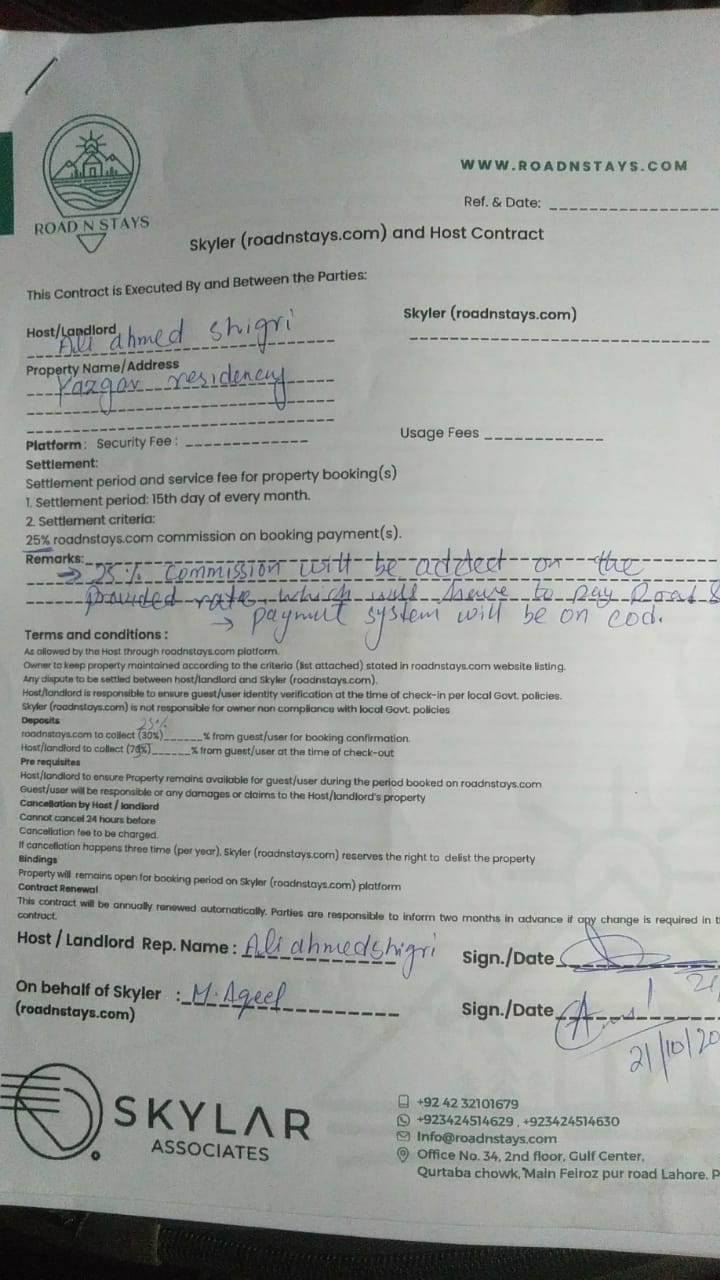 WWW.ROADNSTAYS.COM
ROAD N STAYS
Ref. & Date:
Skyler (roadnstays.com) and Host Contract
This Contract is Executed By and Between the Parties:
Host/Landlord
Ali ahmed shigri
Skyler (roadnstays.com)
Property Name/Address
Yazgar residency
Platform: Security Fee:
Usage Fees
Settlement:
Settlement period and service fee for property booking(s)
1. Settlement period: 15th day of every month.
2. Settlement criteria:
25% roadnstays.com commission on booking payment(s).
Remarks:
→ 25% commission will be added on the
provided rate, which will have to pay Road &
→ paymnt system will be on cod.
Terms and conditions :
As allowed by the Host through roadnstays.com platform.
Owner to keep property maintained according to the criteria (list attached) stated in roadnstays.com website listing.
Any dispute to be settled between host/landlord and Skyler (roadnstays.com).
Host/landlord is responsible to ensure guest/user identity verification at the time of check-in per local Govt. policies.
Skyler (roadnstays.com) is not responsible for owner non compliance with local Govt. policies
Deposits
25%
roadnstays.com to collect (30%)______% from guest/user for booking confirmation.
Host/landlord to collect (70%)______% from guest/user at the time of check-out
Pre requisites
Host/landlord to ensure Property remains available for guest/user during the period booked on roadnstays.com
Guest/user will be responsible or any damages or claims to the Host/landlord's property
Cancellation by Host / landlord
Cannot cancel 24 hours before
Cancellation fee to be charged.
If cancellation happens three time (per year), Skyler (roadnstays.com) reserves the right to delist the property
Bindings
Property will remains open for booking period on Skyler (roadnstays.com) platform
Contract Renewal
This contract will be annually renewed automatically. Parties are responsible to inform two months in advance if any change is required in t
contract.
Host / Landlord Rep. Name : Ali ahmed shigri
Sign./Date
On behalf of Skyler : M. Aqeel
(roadnstays.com)
Sign./Date
21/10/20
SKYLAR
ASSOCIATES
+92 42 32101679
+923424514629 , +923424514630
Info@roadnstays.com
Office No. 34, 2nd floor, Gulf Center,
Qurtaba chowk, Main Feiroz pur road Lahore, P